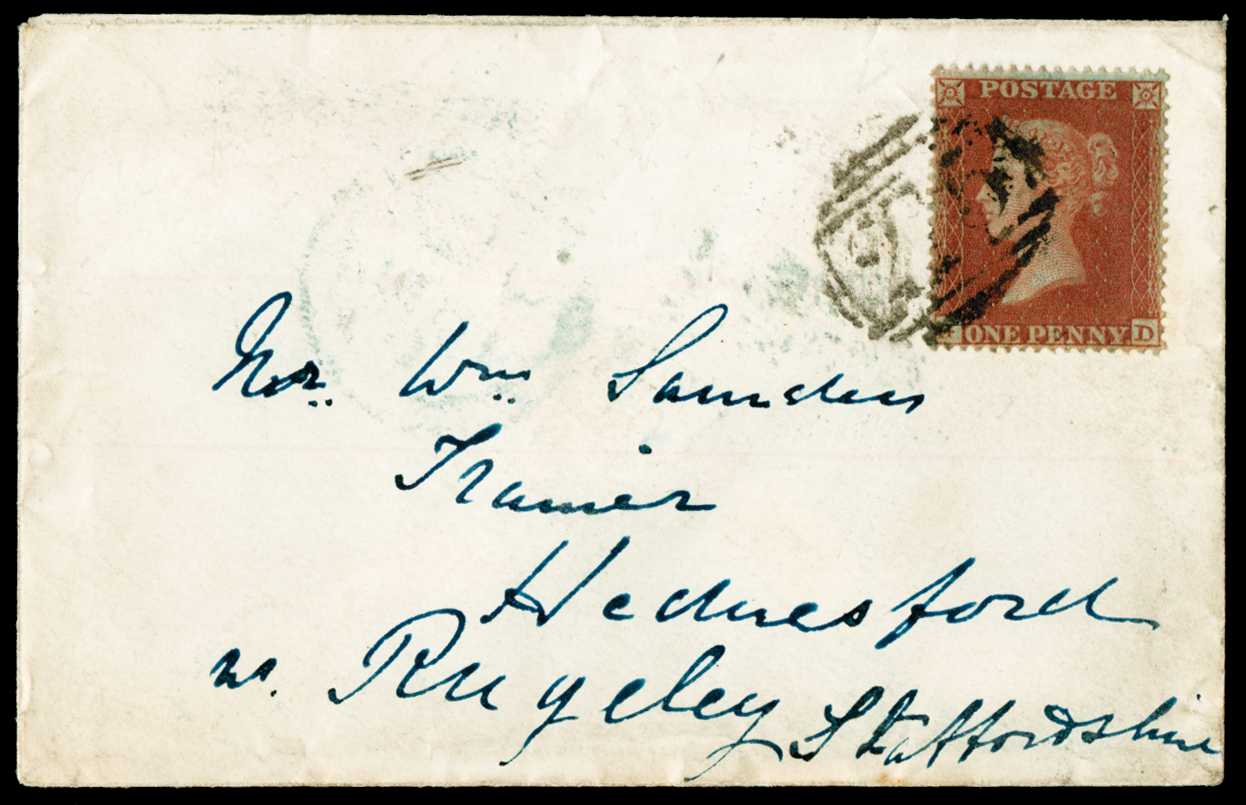 POSTAGE
ONE PENNY D
Mr. Wm. Saunders
Trainer
Hednesford
nr. Rugeley Staffordshire